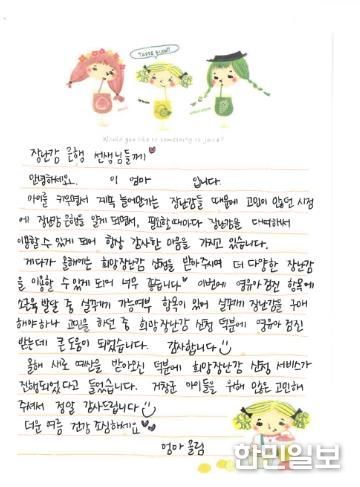 Taste good!
Would you like to something to juice?
장난감 은행 선생님들께♥
안녕하세요. 이 엄마 입니다.
아이를 키우면서 계속 늘어만가는 장난감들 때문에 고민이 많던 시점
에 장난감 은행을 알게 되면서, 필요할때마다 장난감을 대여해서
이용할 수 있게 되어 항상 감사한 마음을 가지고 있습니다.
게다가 올해에는 희망장난감 신청을 받아주시며 더 다양한 장난감
을 이용할 수 있게 되어 너무 좋습니다! 이번에 영유아 검진 항목에
소근육 발달 중 실꿰기 가능여부 항목이 있어 실꿰기 장난감을 구매
해야하나 고민을 하던 중 희망장난감 신청 덕분에 영유아 검진
받는데 큰 도움이 되었습니다. 감사합니다
올해 새로 예산을 받아오신 덕분에 희망장난감 신청 서비스가
진행되었다고 들었습니다. 거창군 아이들을 위해 오늘도 고민해
주셔서 정말 감사드립니다
더운 여름 건강 조심하세요♥
엄마 올림
한민일보